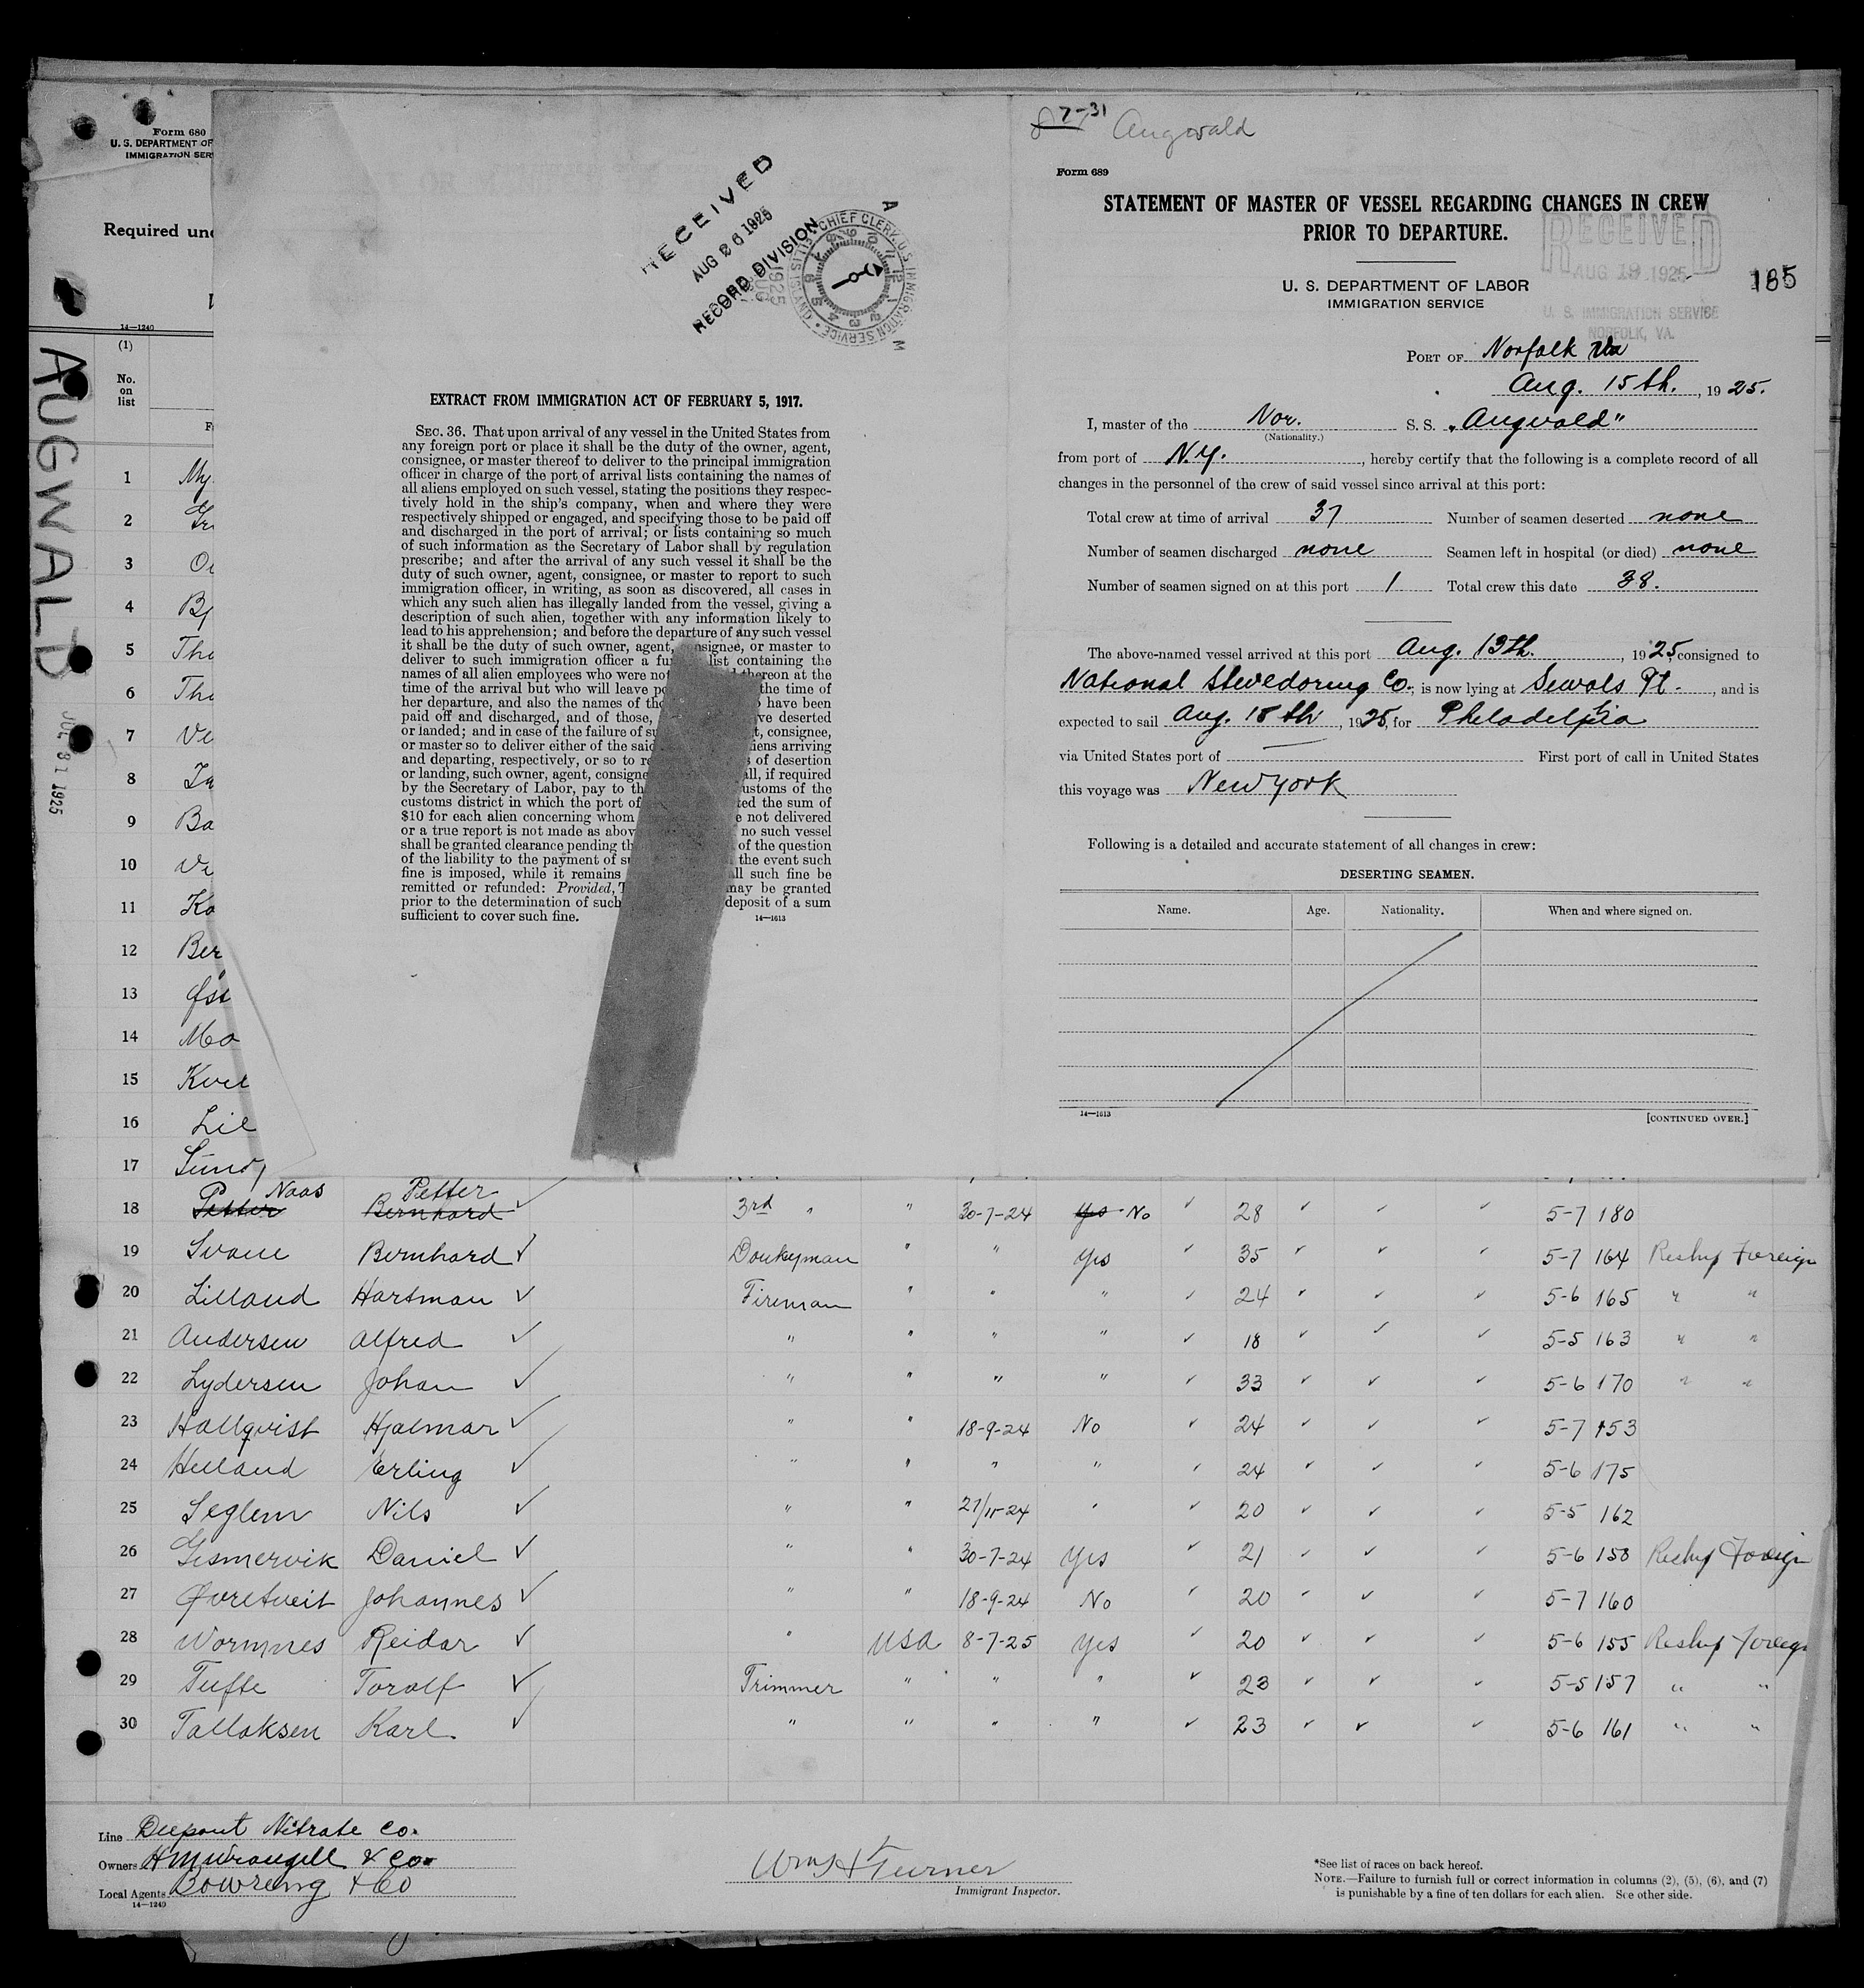 Form 680
U. S. DEPARTMENT OF
IMMIGRATION SER
Required und
14—1240
(1)
No.
on
list
AUGWALD
JUL 31 1925
1 My
2 Gri
3
4 Bj
5 Tho
6 Tho
7 Ve
8
9 Ba
10 Ve
11 Ko
12 Ber
13 Øst
14 Mo
15 Kvel
16 Lil
17 Sund
RECEIVED
AUG 26 1925
RECORD DIVISION
CHIEF CLERK, U.S. IMMIGRATION SERVICE • ELLIS ISLAND
A
M
EXTRACT FROM IMMIGRATION ACT OF FEBRUARY 5, 1917.
SEC. 36. That upon arrival of any vessel in the United States from
any foreign port or place it shall be the duty of the owner, agent,
consignee, or master thereof to deliver to the principal immigration
officer in charge of the port of arrival lists containing the names of
all aliens employed on such vessel, stating the positions they respec-
tively hold in the ship's company, when and where they were
respectively shipped or engaged, and specifying those to be paid off
and discharged in the port of arrival; or lists containing so much
of such information as the Secretary of Labor shall by regulation
prescribe; and after the arrival of any such vessel it shall be the
duty of such owner, agent, consignee, or master to report to such
immigration officer, in writing, as soon as discovered, all cases in
which any such alien has illegally landed from the vessel, giving a
description of such alien, together with any information likely to
lead to his apprehension; and before the departure of any such vessel
it shall be the duty of such owner, agent, consignee, or master to
deliver to such immigration officer a fu list containing the
names of all alien employees who were not thereon at the
time of the arrival but who will leave po the time of
her departure, and also the names of tho have been
paid off and discharged, and of those, ve deserted
or landed; and in case of the failure of su t, consignee,
or master so to deliver either of the said iens arriving
and departing, respectively, or so to re of desertion
or landing, such owner, agent, consigne all, if required
by the Secretary of Labor, pay to th ustoms of the
customs district in which the port of ted the sum of
$10 for each alien concerning whom not delivered
or a true report is not made as abov no such vessel
shall be granted clearance pending th of the question
of the liability to the payment of su the event such
fine is imposed, while it remains all such fine be
remitted or refunded: Provided, T may be granted
prior to the determination of such deposit of a sum
sufficient to cover such fine.
14—1613
7-31 Augvald
Form 689
STATEMENT OF MASTER OF VESSEL REGARDING CHANGES IN CREW
PRIOR TO DEPARTURE.
U. S. DEPARTMENT OF LABOR
IMMIGRATION SERVICE
RECEIVED
AUG 19 1925
U. S. IMMIGRATION SERVICE
NORFOLK, VA.
185
PORT OF Norfolk Va
Aug. 15th., 1925.
I, master of the Nor. S. S. „Augvald"
(Nationality.)
from port of N.Y., hereby certify that the following is a complete record of all
changes in the personnel of the crew of said vessel since arrival at this port:
Total crew at time of arrival 37 Number of seamen deserted none
Number of seamen discharged none Seamen left in hospital (or died) none
Number of seamen signed on at this port 1 Total crew this date 38.
The above-named vessel arrived at this port Aug. 13th., 1925, consigned to
National Stevedoring Co.; is now lying at Sewals Pt., and is
expected to sail Aug. 15th, 1925, for Philadelphia
via United States port of — First port of call in United States
this voyage was New York
Following is a detailed and accurate statement of all changes in crew:
DESERTING SEAMEN.
Name. Age. Nationality. When and where signed on.
14—1613
[CONTINUED OVER.]
Naas Petter
18 Petter Bernhard ✓ 3rd " " 30-7-24 Yes No ✓ 28 ✓ ✓ ✓ 5-7 180
19 Svane Bernhard ✓ Donkeyman " " Yes ✓ 35 ✓ ✓ ✓ 5-7 164 Reship Foreign
20 Lilland Hartman ✓ Fireman " " " ✓ 24 ✓ ✓ ✓ 5-6 165 " "
21 Andersen Alfred ✓ " " " " ✓ 18 ✓ ✓ ✓ 5-5 163 " "
22 Lydersen Johan ✓ " " " " ✓ 33 ✓ ✓ ✓ 5-6 170 " "
23 Hallqvist Hjalmar ✓ " " 18-9-24 No ✓ 24 ✓ ✓ ✓ 5-7 153
24 Helland Erling ✓ " " " " ✓ 24 ✓ ✓ ✓ 5-6 175
25 Seglem Nils ✓ " " 27/11-24 " ✓ 20 ✓ ✓ ✓ 5-5 162
26 Gismervik Daniel ✓ " " 30-7-24 Yes ✓ 21 ✓ ✓ ✓ 5-6 158 Reship Foreign
27 Øvretveit Johannes ✓ " " 18-9-24 No ✓ 20 ✓ ✓ ✓ 5-7 160
28 Wormnes Reidar ✓ " USA 8-7-25 Yes ✓ 20 ✓ ✓ ✓ 5-6 155 Reship Foreign
29 Tufte Toralf ✓ Trimmer " " " ✓ 23 ✓ ✓ ✓ 5-5 157 " "
30 Tallaksen Karl ✓ " " " " ✓ 23 ✓ ✓ ✓ 5-6 161 " "
Line Dupont Nitrate Co.
Owners H M Wrangell & Co.
Local Agents Bowring & Co
14—1240
Wm H Turner
Immigrant Inspector.
*See list of races on back hereof.
NOTE.—Failure to furnish full or correct information in columns (2), (5), (6), and (7)
is punishable by a fine of ten dollars for each alien. See other side.